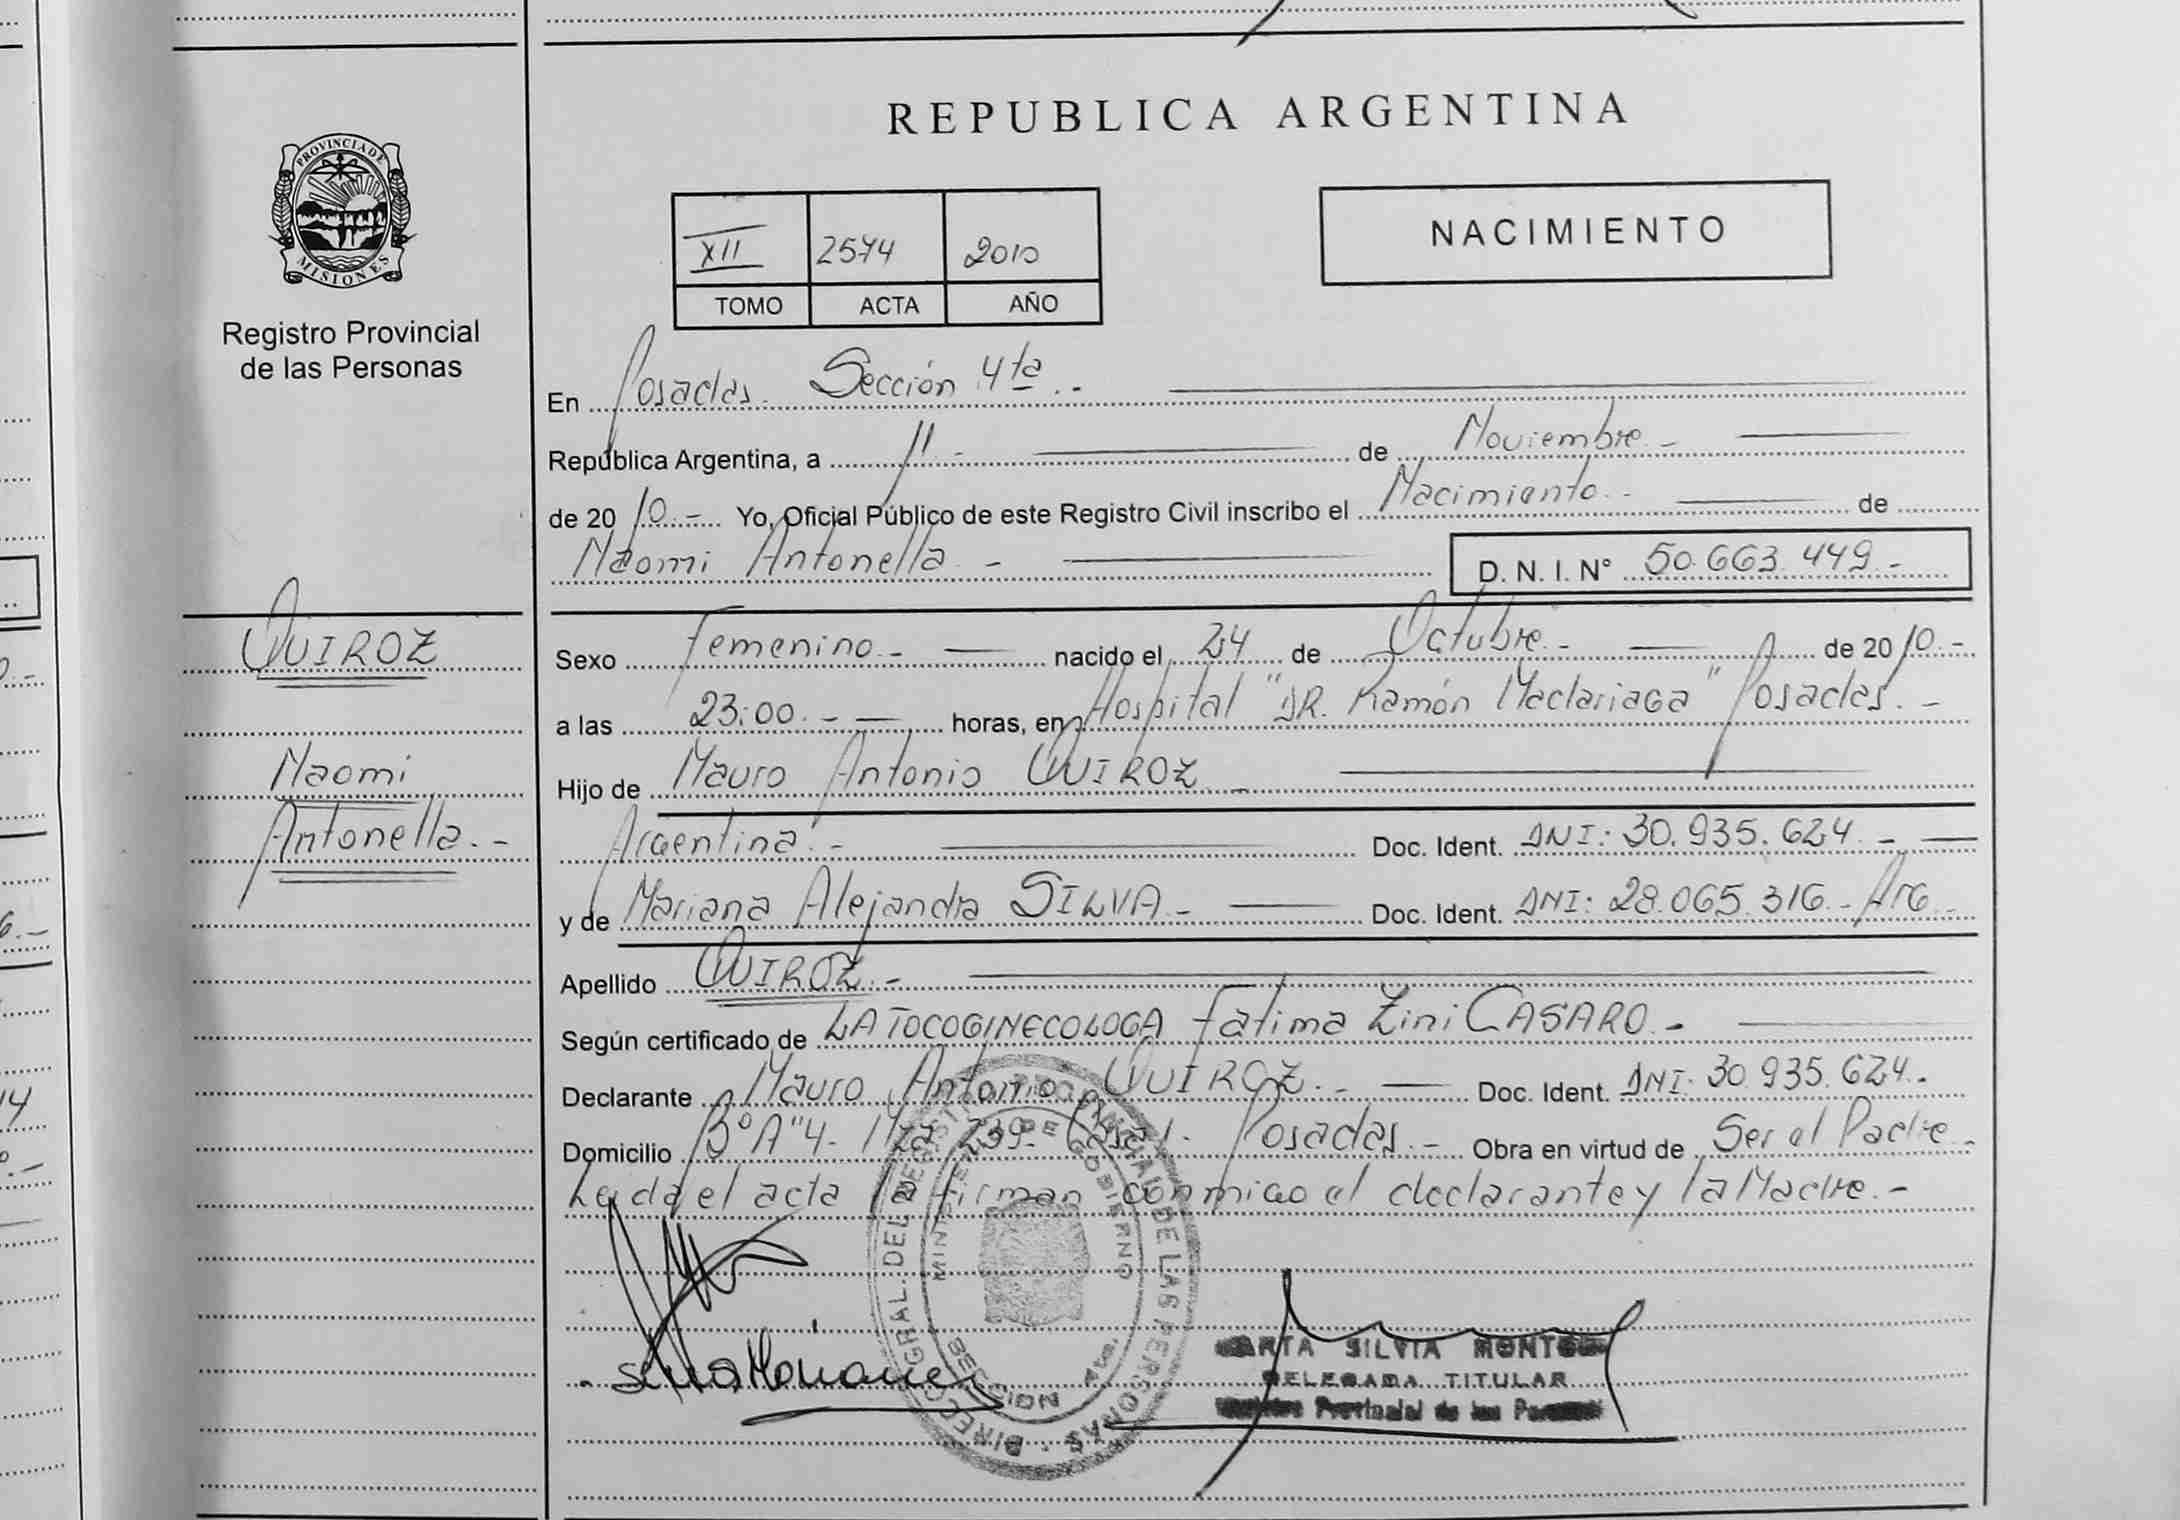 REPUBLICA ARGENTINA
PROVINCIA DE
MISIONES
Registro Provincial
de las Personas
NACIMIENTO
XII 2574 2010
TOMO ACTA AÑO
En Posadas. Sección 4ta..
República Argentina, a 11.- de Noviembre.-
de 2010.- Yo, Oficial Público de este Registro Civil inscribo el Nacimiento.- de
Naomi Antonella.- D. N. I. N° 50.663.449.-
QUIROZ
Naomi
Antonella.-
Sexo Femenino.- nacido el 24 de Octubre.- de 2010.-
a las 23:00.- horas, en Hospital "DR. Ramón Madariaga" Posadas.-
Hijo de Mauro Antonio QUIROZ.-
Argentina.- Doc. Ident. DNI: 30.935.624.-
y de Mariana Alejandra SILVA.- Doc. Ident. DNI: 28.065.316.- Arg.-
Apellido QUIROZ.-
Según certificado de LA TOCOGINECOLOGA Fatima Zini CASARO.-
Declarante Mauro Antonio QUIROZ.- Doc. Ident. DNI: 30.935.624.-
Domicilio B° A"4- Mza 239- Casa 1. Posadas.- Obra en virtud de Ser el Padre.-
Leida el acta la firman conmigo el declarante y la Madre.-
DIRECC. GRAL. DEL REGISTRO PROVINCIAL DE LAS PERSONAS
MINISTERIO DE GOBIERNO
SECCION 4ta.
Silva Mariana
SILVIA
DELEGADA TITULAR
Provincial de las